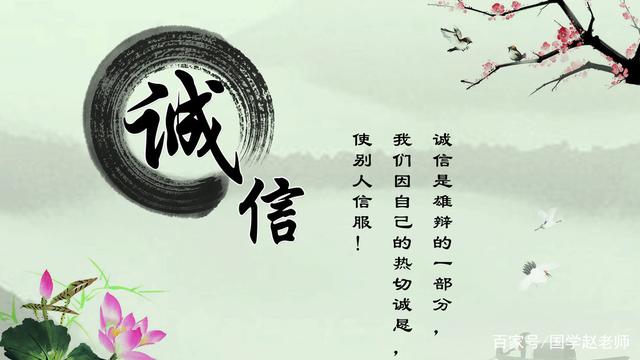 诚信
诚信是雄辩的一部分，
我们因自己的热切诚恳，
使别人信服！
百家号/国学赵老师